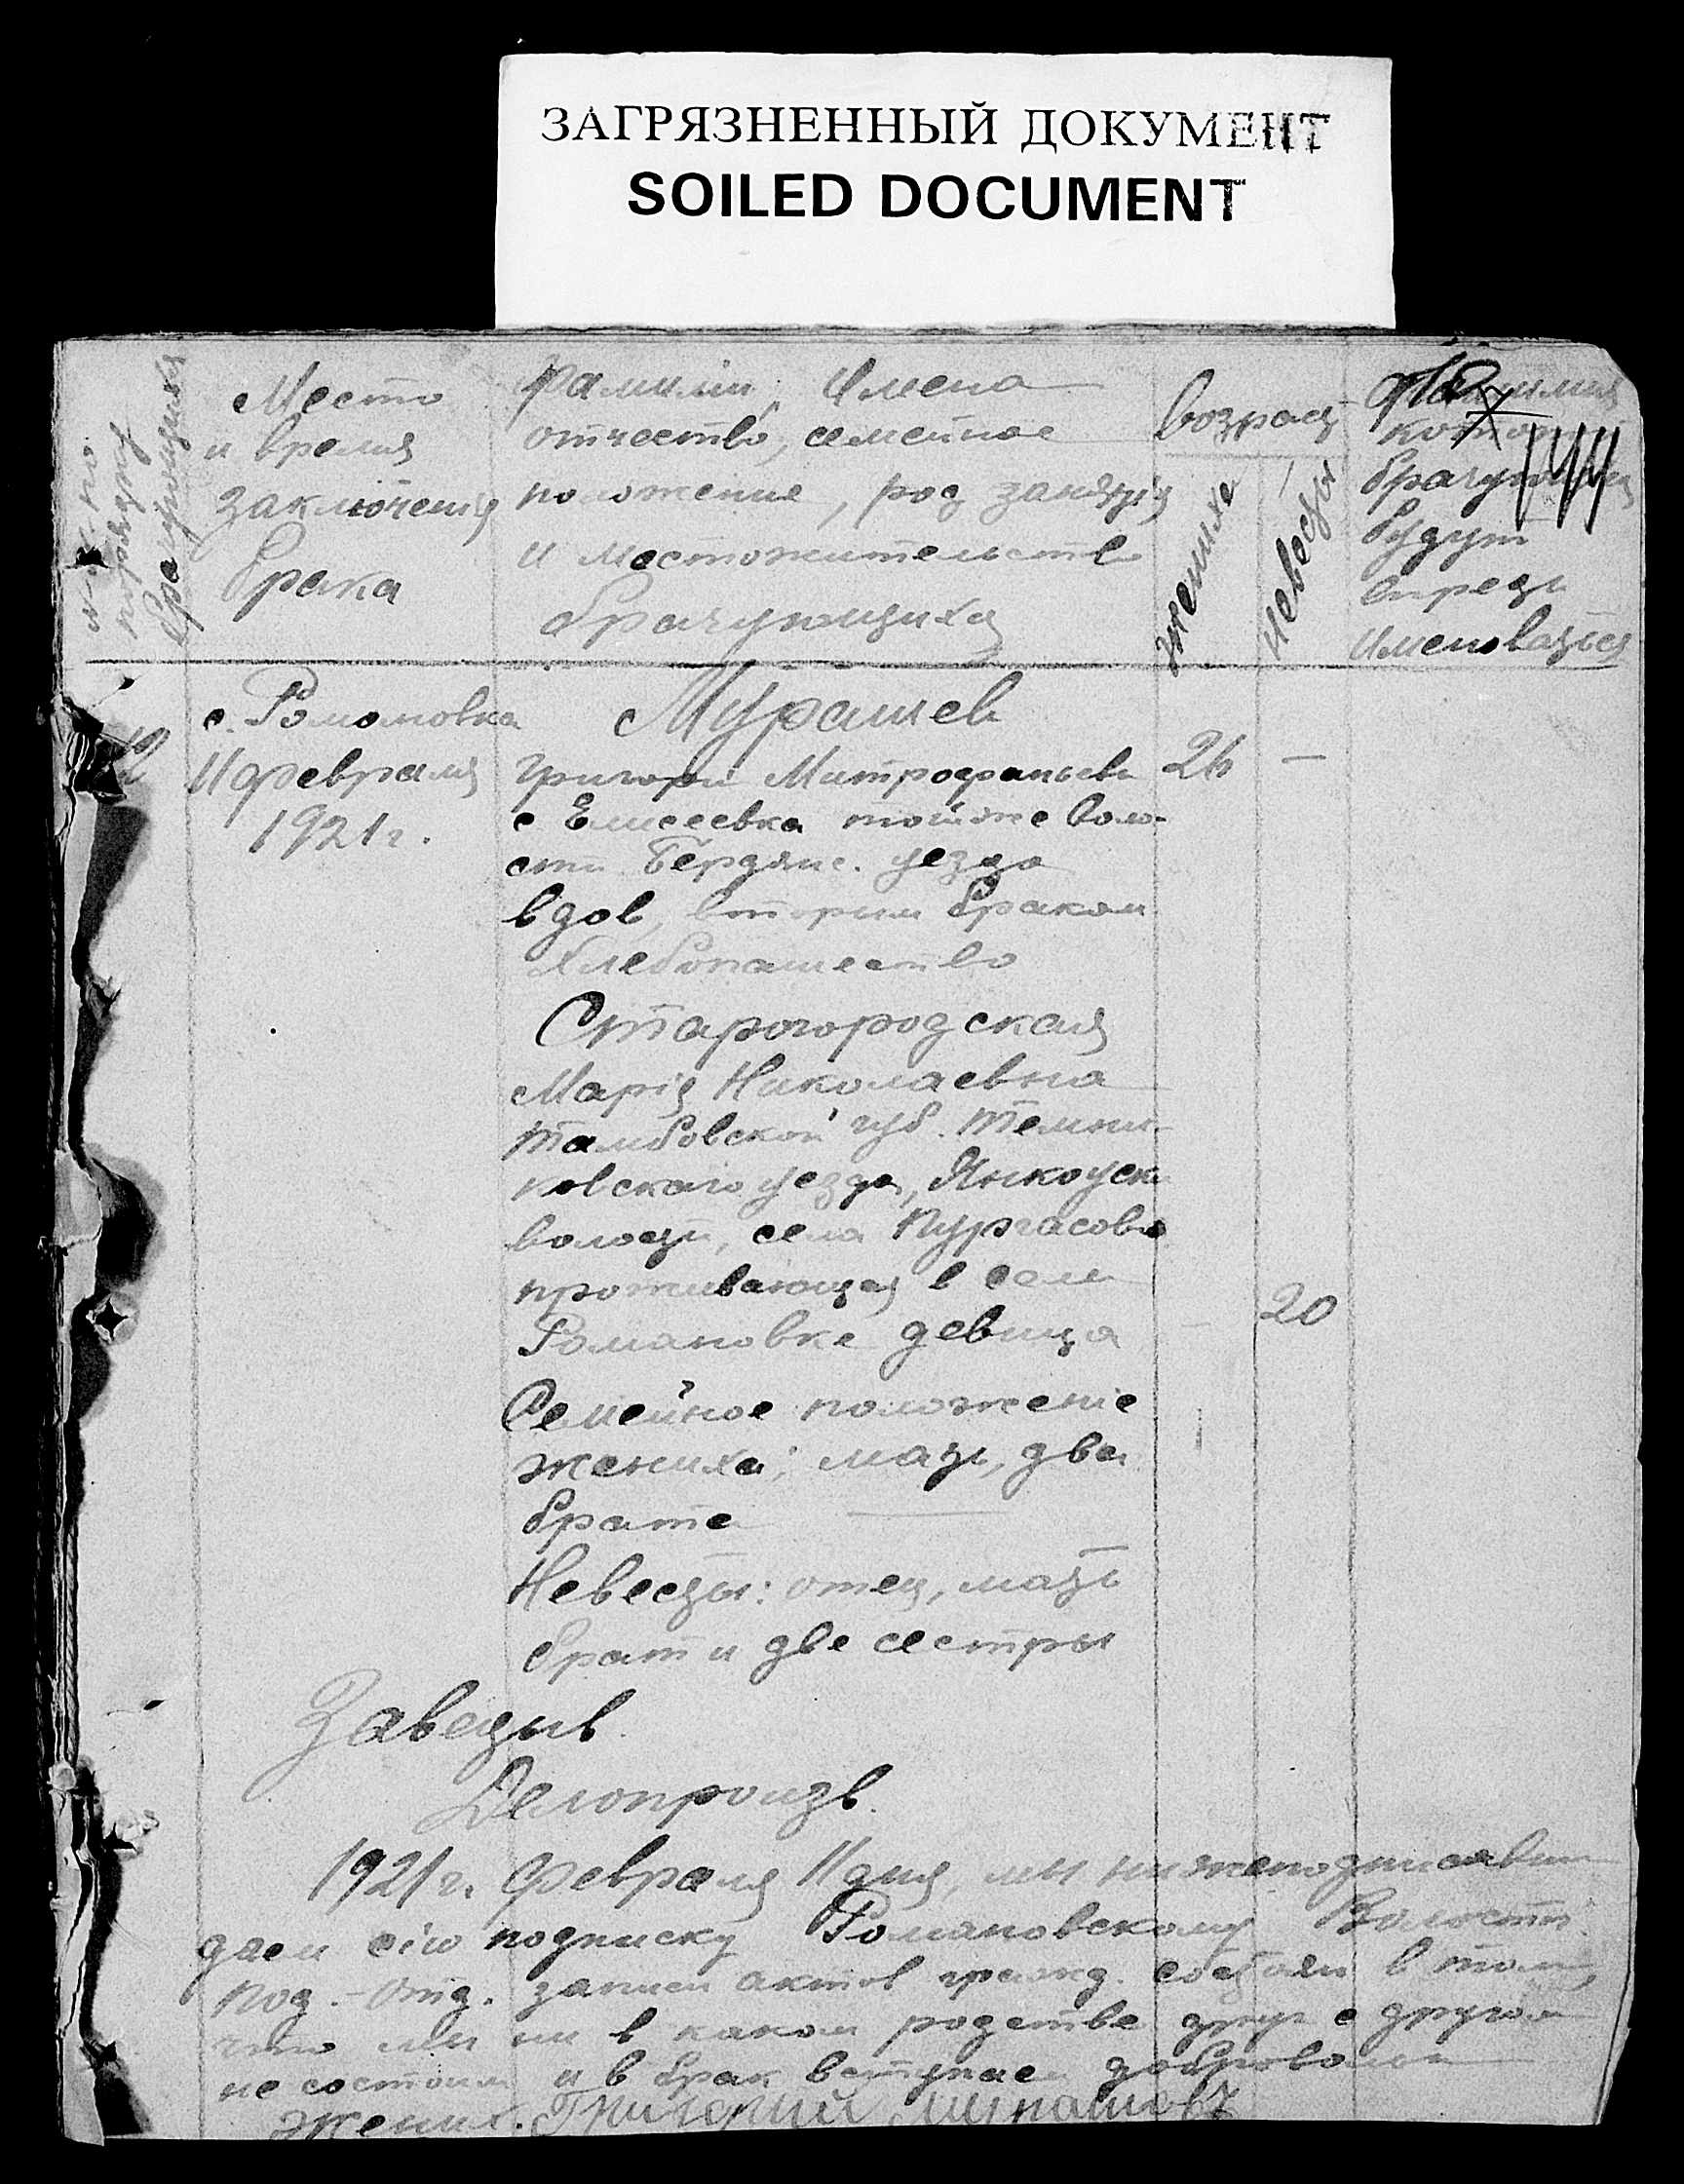 ЗАГРЯЗНЕННЫЙ ДОКУМЕНТ
SOILED DOCUMENT
Место
и время
заключения
Брака
фамилии, имена
отчество, семейное
положение, род занятія
и местожительств
Брачующихся
возраст
жениха
невесты
брачующихся
будут
впредь
именоваться
с. Романовка
11 февраля
1921 г.
Мурашев
Григорій Митрофаньев
с Елисеевка тойже воло-
сти Бердянс. уезда
вдов, вторым браком
Хлебопашество
26 —
Старогородская
Марія Николаевна
Тамбовской губ. Темни-
ковскаго уезда,
волости, села Пургасово
проживающая в селе
Романовке девица
20
Семейное положеніе
жениха: мать, два
брата
Невесты: отец, мать
брат и две сестры
Заведыв.
Делопроизв.
1921 г. февраля 11 дня, мы нижеподписавши
даем сію подписку Романовскому Волостн.
под.-отд. записи актов гражд. состоян в том,
что мы ни в каком родстве друг с другом
не состоим и в брак вступаем добровольно
жених. Григорий Мурашовъ